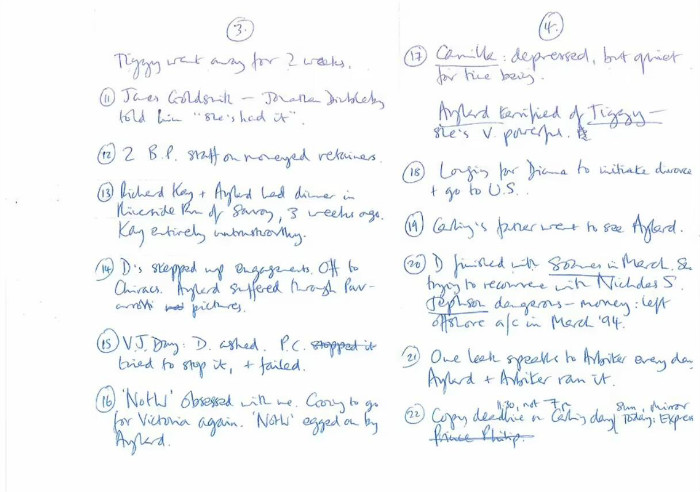 3.
Tiggy went away for 2 weeks.
11 James Goldsmith – Jonathan Dimbleby
told him "she's had it".
12 2 B.P. staff on moneyed retainers.
13 Richard Kay + Aylard had dinner in
Riverside Rm of Savoy, 3 weeks ago.
Kay entirely untrustworthy.
14 D's stepped up engagements. Off to
Chiracs. Aylard suffered through Pav-
arotti pictures.
15 V.J. Day: D. asked. P.C. stopped it
tried to stop it, + failed.
16 'NoTW' obsessed with me. Going to go
for Victoria again. 'NoTW' egged on by
Aylard.
4.
17 Camilla: depressed, but quiet
for time being.
Aylard terrified of Tiggy –
she's v. powerful.
18 Longing for Diana to initiate divorce
+ go to U.S.
19 Carling's father went to see Aylard.
20 D finished with Soames in March. Is
trying to reconvene with Nicholas S.
Jephson dangerous – money: left
offshore a/c in March '94.
21 One leak speaks to Arbiter every day
Aylard + Arbiter ran it.
11.30, not 7 Sun, Mirror
22 Copy deadline on Carling day/ Today: Express
Prince Philip.